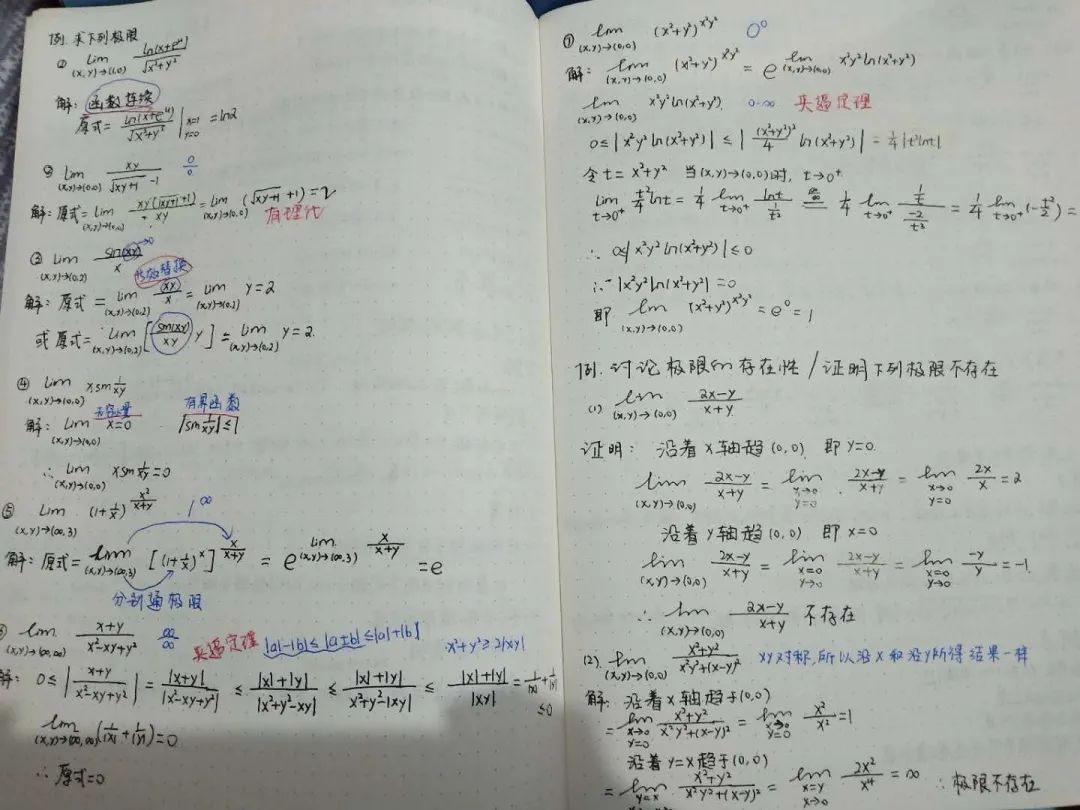 例. 求下列极限
① lim (x,y)→(1,0) ln(x+e^y)/√(x²+y²)
解: 函数连续
原式 = ln(x+e^y)/√(x²+y²) | x=1 y=0 = ln2
② lim (x,y)→(0,0) xy/(√(xy+1) -1) 0/0
解: 原式 = lim (x,y)→(0,0) xy(√(xy+1)+1)/xy = lim (x,y)→(0,0) (√(xy+1) +1) = 2
有理化
③ lim (x,y)→(0,2) sin(xy)/x →0
等效替换
解: 原式 = lim (x,y)→(0,2) (xy)/x = lim (x,y)→(0,2) y = 2
或 原式 = lim (x,y)→(0,2) [sin(xy)/xy y] = lim (x,y)→(0,2) y = 2.
④ lim (x,y)→(0,0) x sin 1/xy
无穷小量 有界函数
解: lim (x,y)→(0,0) x=0 |sin 1/xy| ≤ 1
∴ lim (x,y)→(0,0) x sin 1/xy = 0
⑤ lim (x,y)→(∞,3) (1+1/x)^(x²/(x+y)) 1^∞
解: 原式 = lim (x,y)→(∞,3) [(1+1/x)^x]^(x/(x+y)) = e^(lim (x,y)→(∞,3) x/(x+y)) = e
分别通极限
lim (x,y)→(∞,∞) (x+y)/(x²-xy+y²) ∞/∞ 夹逼定理 |a|-|b| ≤ |a±b| ≤ |a|+|b| x²+y² ≥ 2|xy|
解: 0 ≤ |(x+y)/(x²-xy+y²)| = |x+y|/|x²-xy+y²| ≤ (|x|+|y|)/|x²+y²-xy| ≤ (|x|+|y|)/(x²+y²-|xy|) ≤ (|x|+|y|)/|xy| = 1/|x| + 1/|y|
≤0
lim (x,y)→(∞,∞) (1/|x| + 1/|y|) = 0
∴ 原式=0
⑦ lim (x,y)→(0,0) (x²+y²)^(x²y²) 0^0
解: lim (x,y)→(0,0) (x²+y²)^(x²y²) = e^(lim (x,y)→(0,0) x²y² ln(x²+y²))
lim (x,y)→(0,0) x²y² ln(x²+y²) 0·∞ 夹逼定理
0 ≤ |x²y² ln(x²+y²)| ≤ |(x²+y²)²/4 ln(x²+y²)| = 1/4 |t² ln t|
令 t = x²+y² 当(x,y)→(0,0)时, t→0⁺
lim t→0⁺ t²/4 ln t = 1/4 lim t→0⁺ ln t/(1/t²) =(∞/∞) 1/4 lim t→0⁺ (1/t)/(-2/t³) = 1/4 lim t→0⁺ (-t²/2) =
∴ 0 ≤ |x²y² ln(x²+y²)| ≤ 0
∴ |x²y² ln(x²+y²)| = 0
即 lim (x,y)→(0,0) (x²+y²)^(x²y²) = e^0 = 1
例. 讨论极限的存在性/证明下列极限不存在
(1) lim (x,y)→(0,0) (2x-y)/(x+y)
证明: 沿着x轴趋(0,0) 即 y=0.
lim (x,y)→(0,0) (2x-y)/(x+y) = lim x→0 y=0 (2x-y)/(x+y) = lim x→0 y=0 2x/x = 2
沿着y轴趋(0,0) 即 x=0
lim (x,y)→(0,0) (2x-y)/(x+y) = lim x=0 y→0 (2x-y)/(x+y) = lim x=0 y→0 -y/y = -1.
∴ lim (x,y)→(0,0) (2x-y)/(x+y) 不存在
(2). lim (x,y)→(0,0) (x²+y²)/(x²y²+(x-y)²) xy对称,所以沿x和沿y所得结果一样
解: 沿着x轴趋于(0,0)
= lim x→0 y=0 (x²+y²)/(x²y²+(x-y)²) = lim x→0 y=0 x²/x² = 1
沿着y=x趋于(0,0)
= lim y=x x→0 (x²+y²)/(x²y²+(x-y)²) = lim x=y x→0 2x²/x⁴ = ∞ ∴ 极限不存在